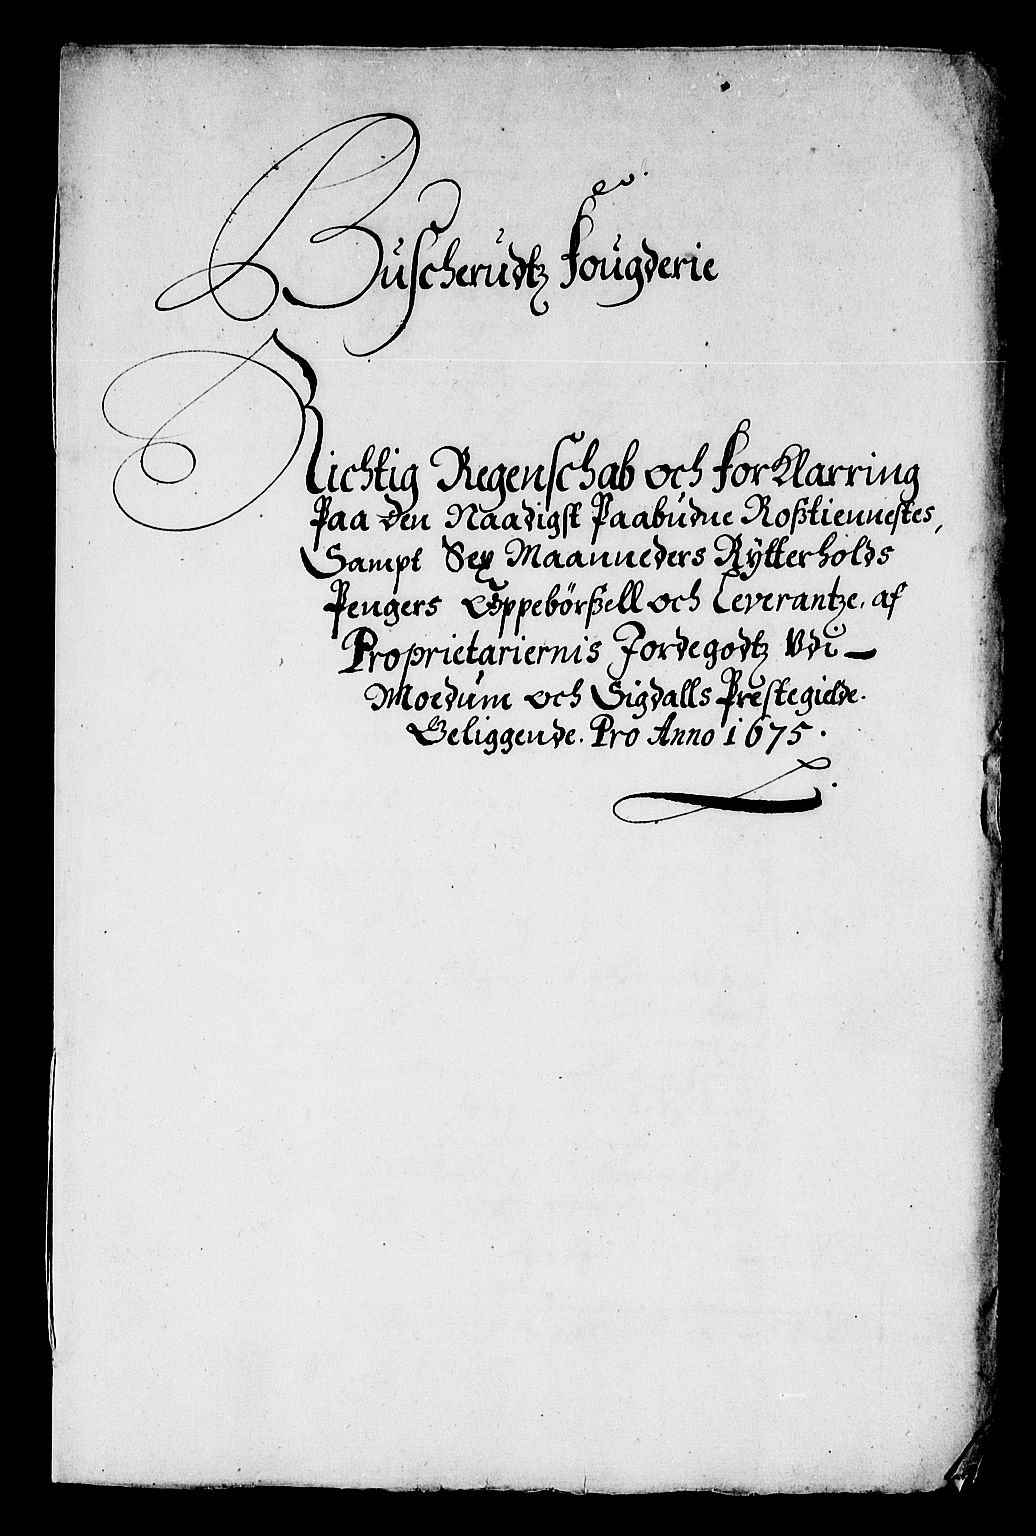 Buscherudtz fougderie
Richtig Regenschab och forKlarring
Paa den Naadigst Paabudne Roßtiennestes,
Sampt Sex Maanneders Rÿtterholds
Pengers Oppebörßell och Leverantze, af
Proprietariernis Jordegodtz Udi
Moedum och Sigdalls Prestegielde.
Beliggende. Pro Anno 1675.